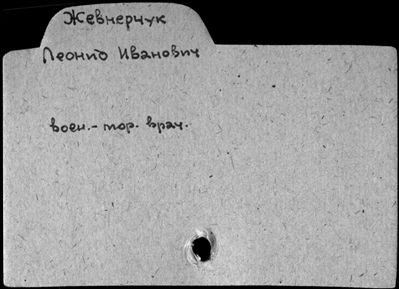 Жевнерчук
Леонид Иванович
воен.-тор. врач.